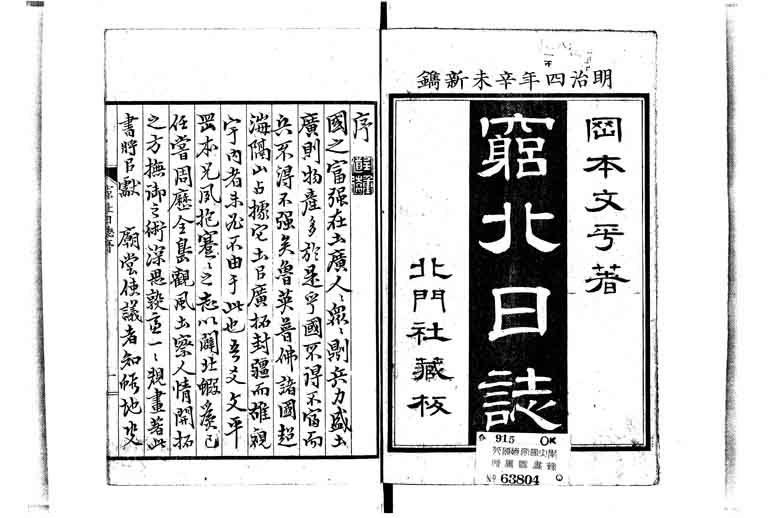 明治四年辛未新鐫
岡本文平著
窮北日誌
北門社藏板
915 OK
№ 63804
序
國之富强在土廣人〻衆〻則兵力盛土
廣則物產多於是乎國不得不富而
兵不得不强矣魯英普佛諸國超
海隔山占據它土以廣拓封疆而雄視
宇内者未必不由于此也吾友文平
岡本兄夙抱蹇〻之志以闢北蝦夷己
任嘗周歷全島觀風土察人情開拓
之方撫御之術深思熟慮一〻規畫著此
書將以獻 廟堂使議者知 地